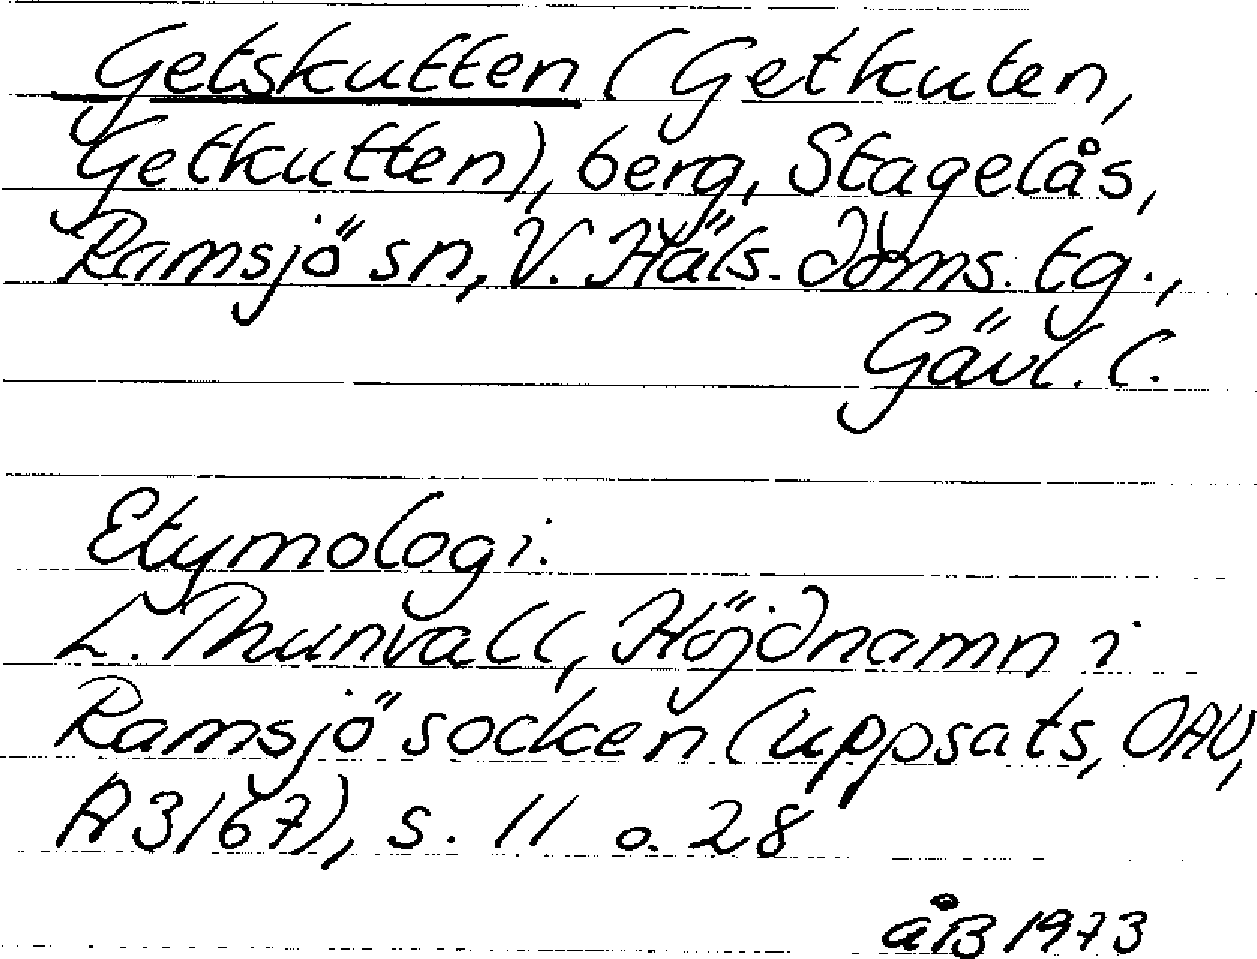 Getskutten (Getkuten,
Getkutten), berg, Stagelås,
Ramsjö sn, V. Häls. doms. tg.,
Gävl. l.
Etymologi.
L. Thunvall, Höjdnamn i
Ramsjö socken (uppsats, OAU,
A 3167), s. 11 o. 28
åB 1973